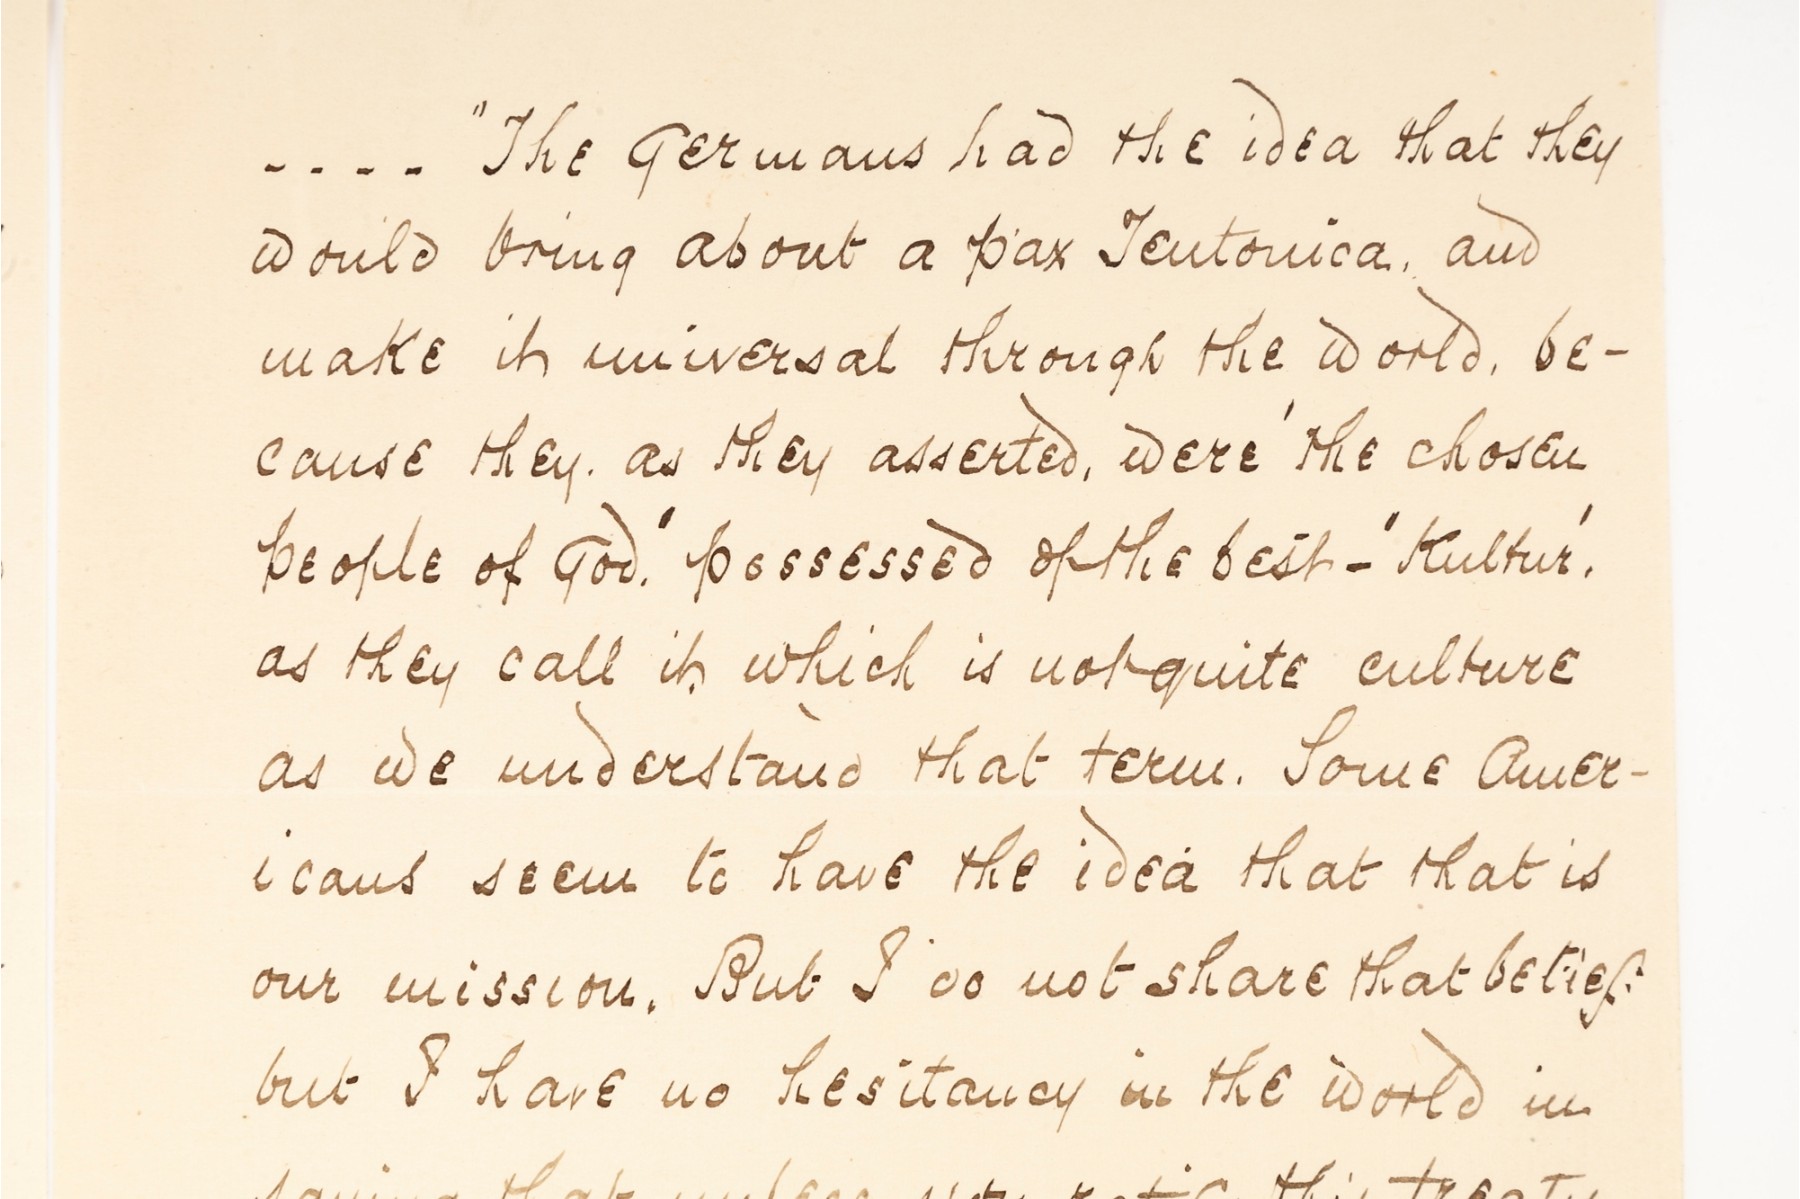 ---- "The Germans had the idea that they
would bring about a pax Teutonica, and
make it universal through the world, be-
cause they, as they asserted, were 'the chosen
people of God,' possessed of the best - 'Kultur',
as they call it, which is not quite culture
as we understand that term. Some Amer-
icans seem to have the idea that that is
our mission. But I do not share that belief;
but I have no hesitancy in the world in
saying that unless you ratify this treaty